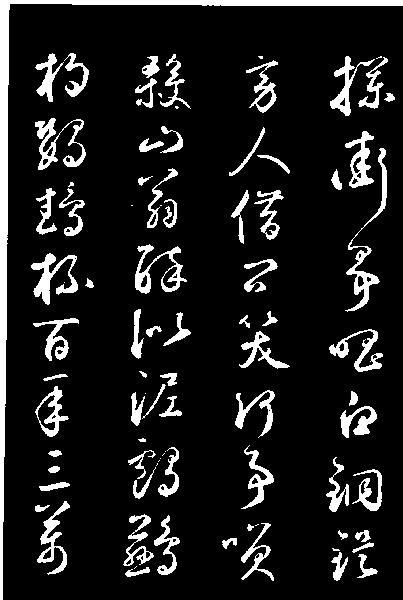 攔街爭唱白銅鍉
旁人借問笑何事咲
殺山翁醉似泥鸕鶿
杓鸚鵡杯百年三萬